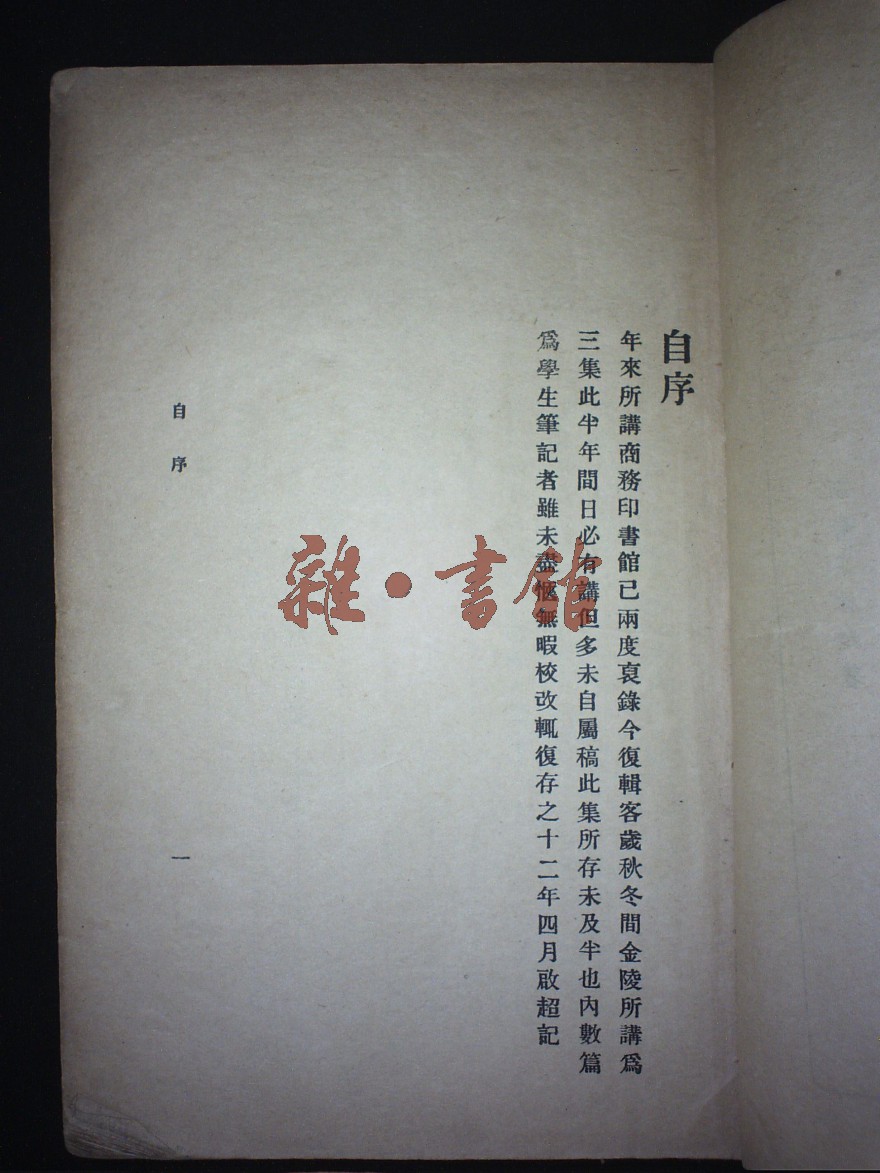 自序
年來所講商務印書館已兩度裒錄今復輯客歲秋冬間金陵所講爲
三集此半年間日必有講但多未自屬稿此集所存未及半也內數篇
爲學生筆記者雖未盡愜無暇校改輒復存之十二年四月啟超記
自序
一
雜·書館